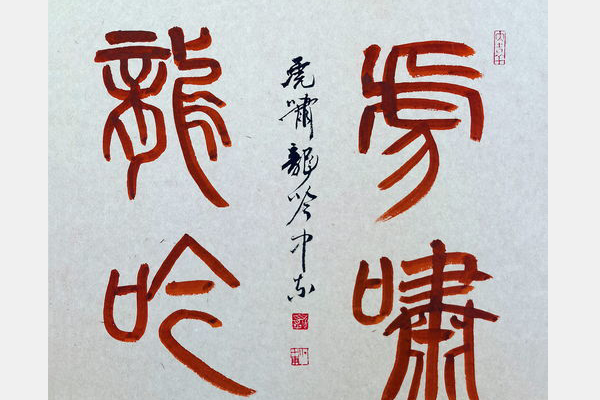 虎嘯
龍吟
虎嘯龍吟中